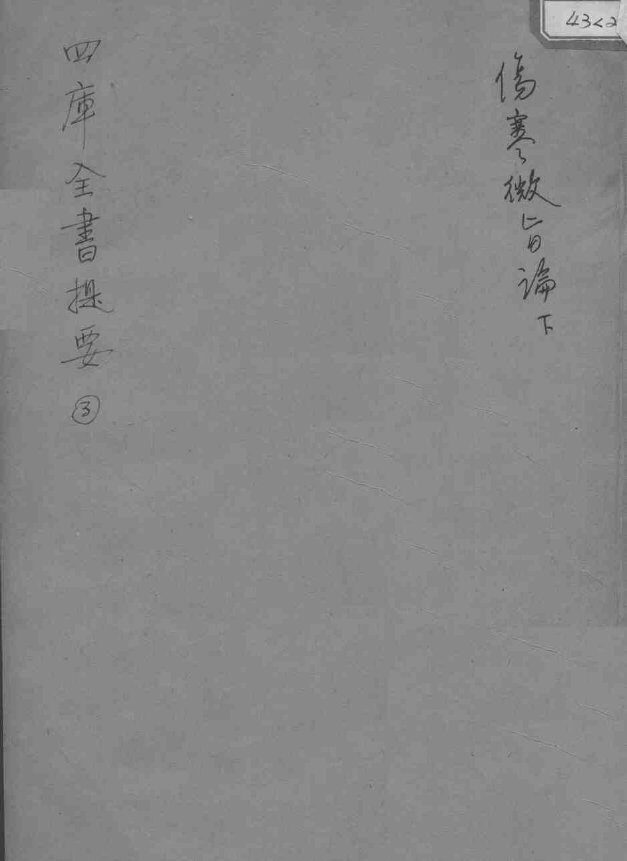 43<2
傷寒微旨論下
四庫全書提要③